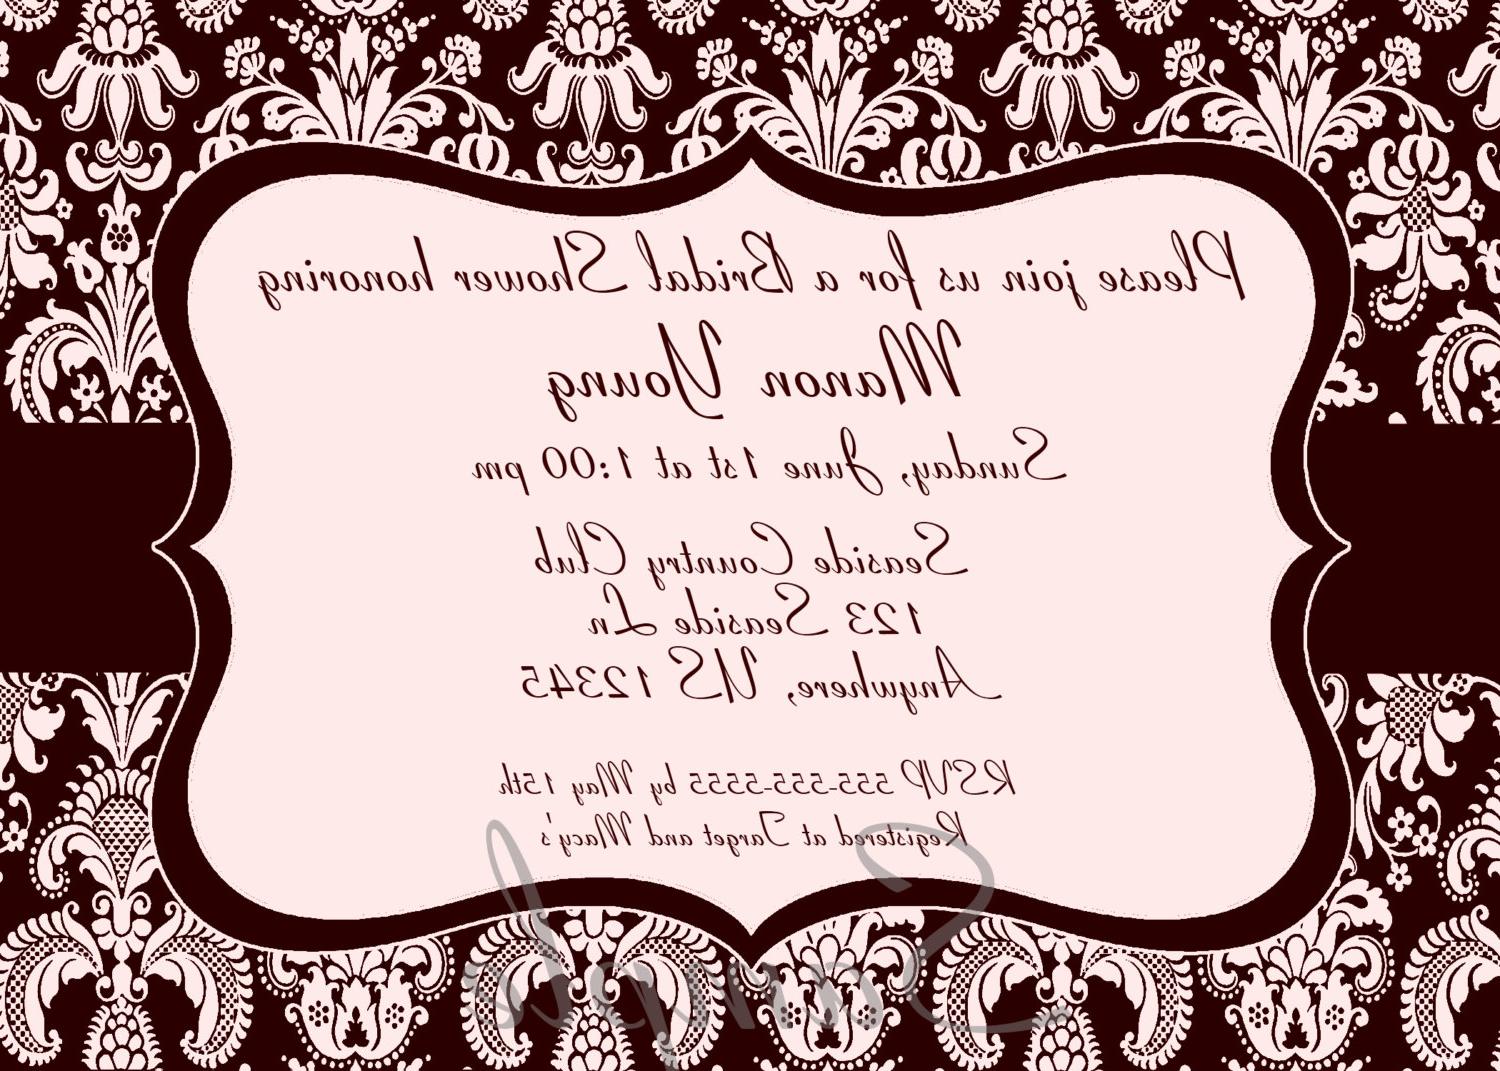 Please join us for a Bridal Shower honoring
Manon Young
Sunday, June 1st at 1:00 pm
Seaside Country Club
123 Seaside Ln
Anywhere, US 12345
RSVP 555-555-5555 by May 15th
Registered at Target and Macy's
Sample